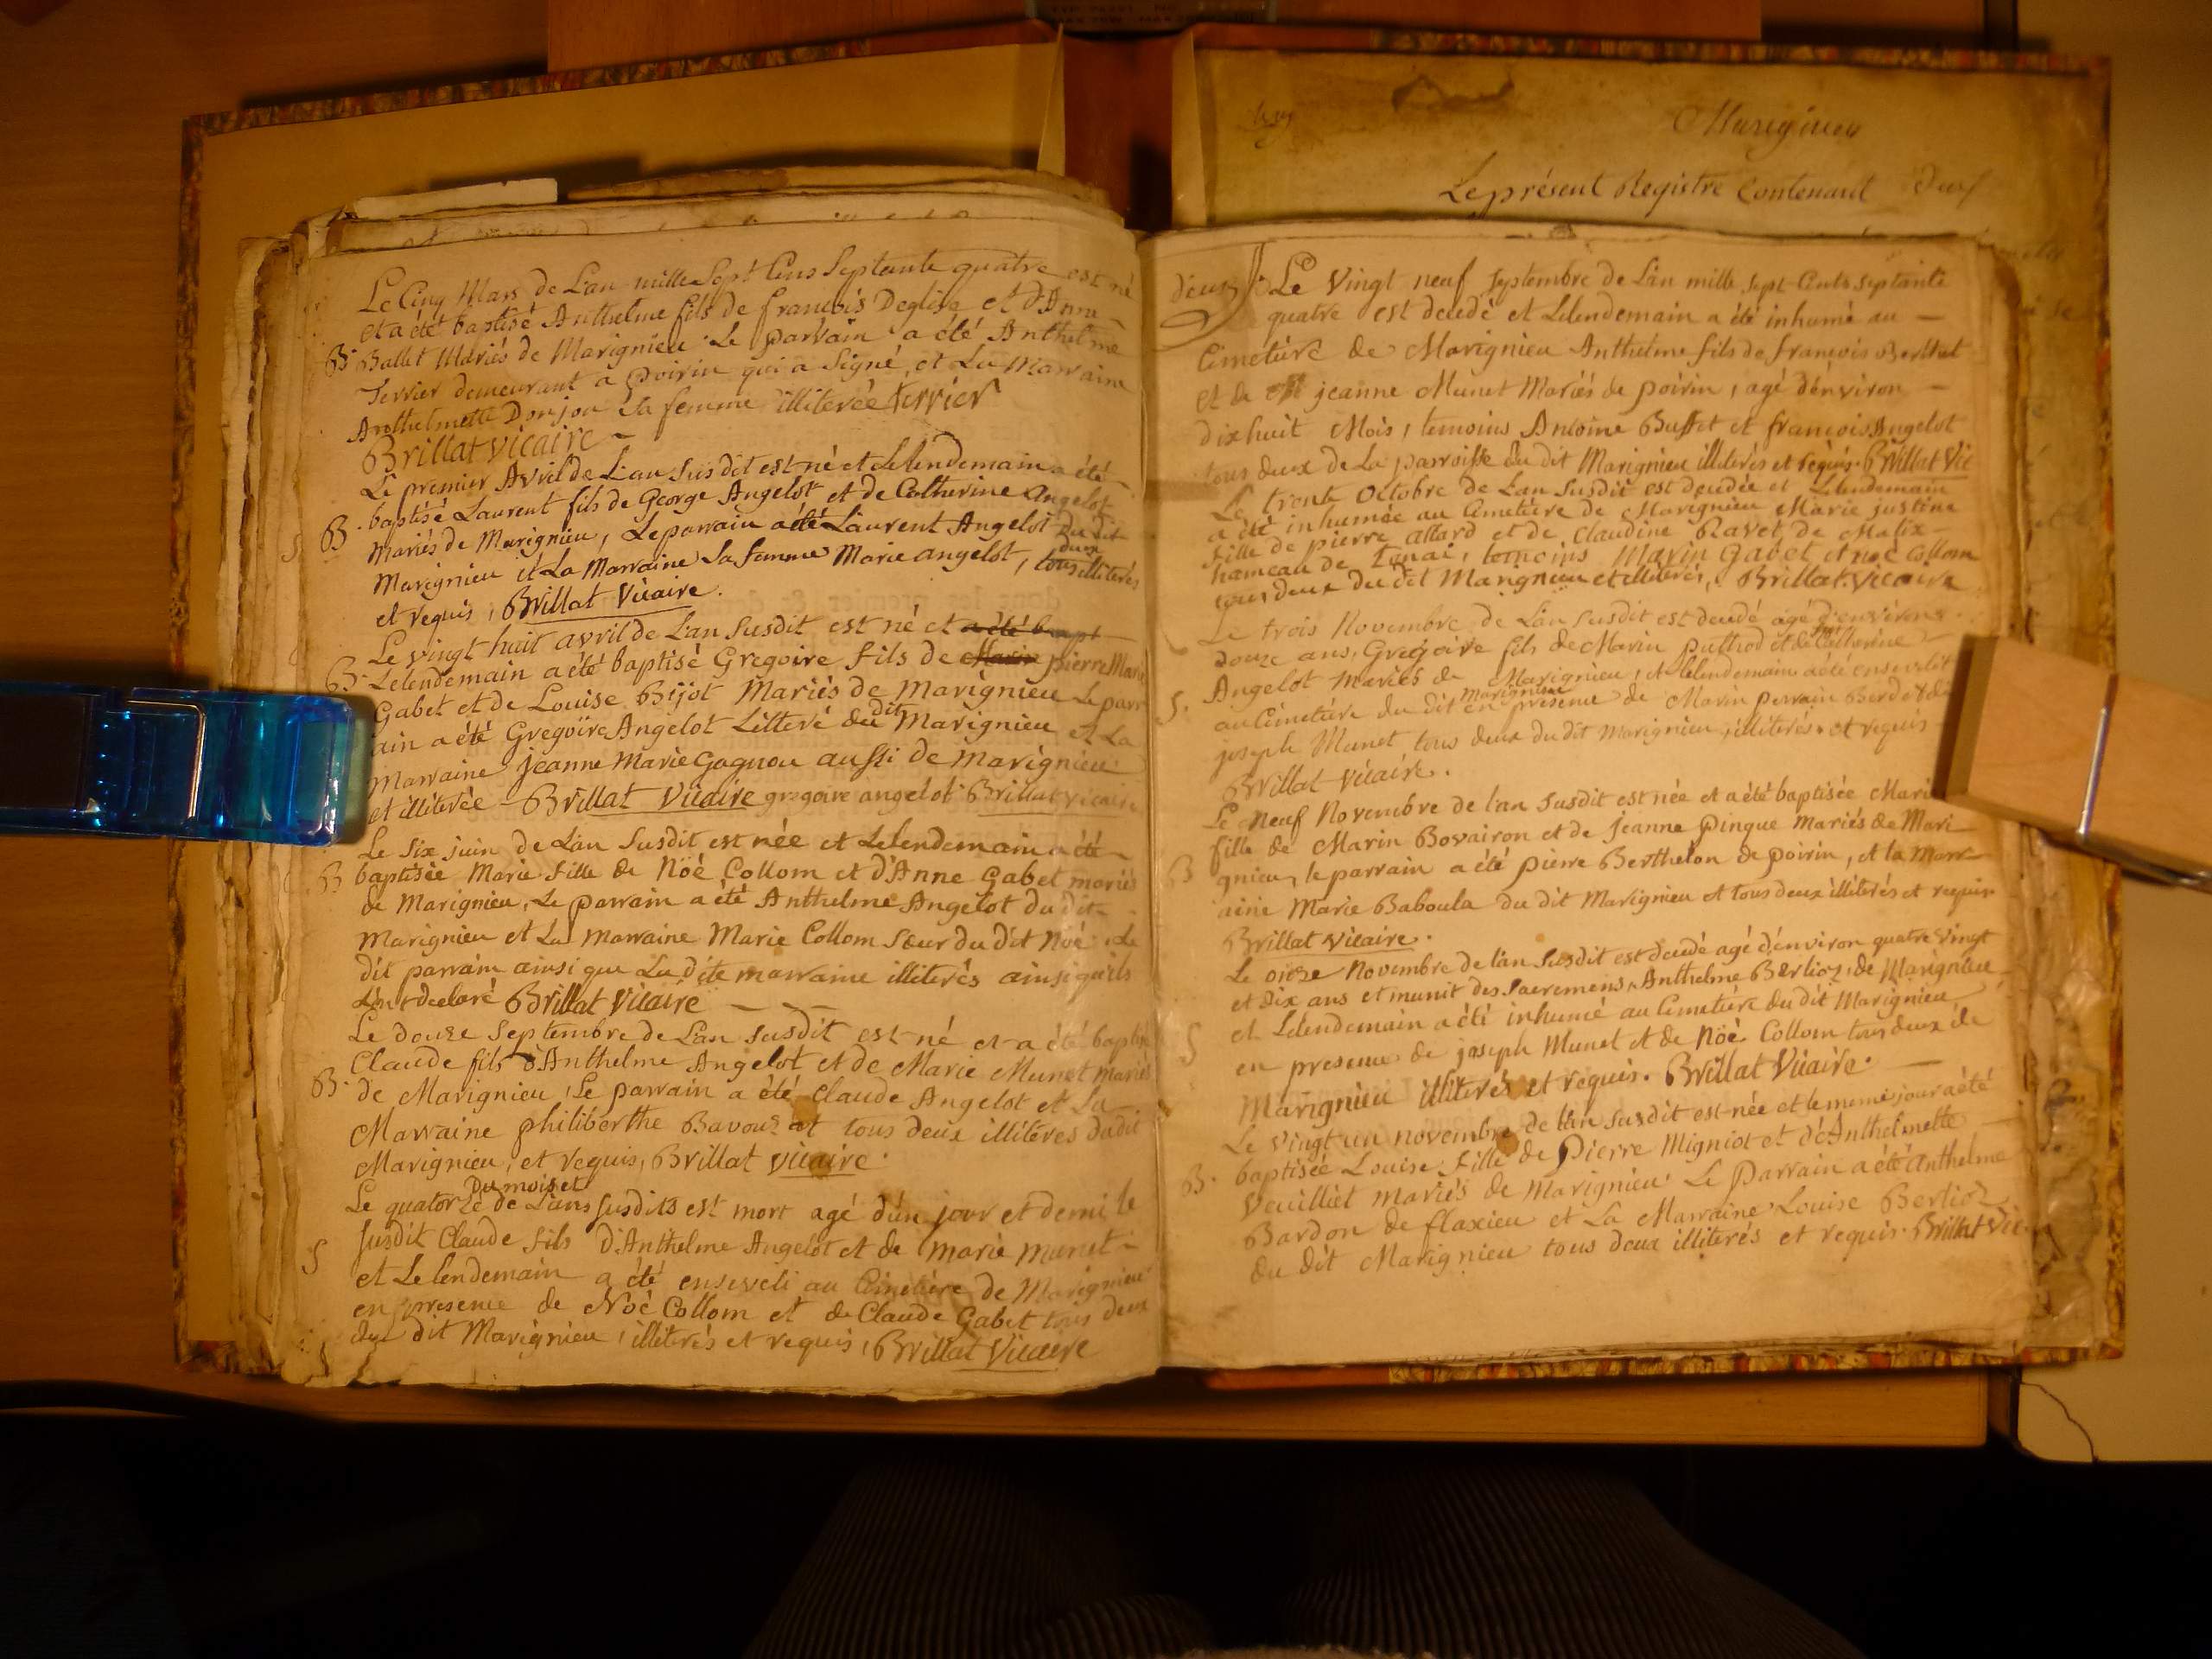 Le Cinq Mars de L'an mille Sept Cens Septante quatre est né
et a été baptisé Anthelme fils de francois Deglise et d'Anne
B. Ballet Mariés de Marignieu. Le parrain a été Anthelme
Terrier demeurant a poirin qui a Signé, et La Marraine
Anthelmette Donjou Sa femme illiterée Terrier
Brillat Vicaire
Le premier Avril de L'an Susdit est né et Le lendemain a été
B. baptisé Laurent fils de George Angelot et de Catherine Angelot
Mariés de Marignieu, Le parrain a été Laurent Angelot du dit
Marignieu et La Marraine Sa femme Marie angelot, tous deux illiterés
et requis, Brillat Vicaire.
Le vingt huit avril de L'an Susdit est né et a été bapt
B. Lelendemain a été baptisé Gregoire fils de Marin pierre Marie
Gabet et de Louise Bijot Mariés de Marignieu Le parr
ain a été Gregoire Angelot Litteré du dit Marignieu et La
Marraine jeanne Marie Gagnou aussi de Marignieu
et illiterée Brillat Vicaire gregoire angelot Brillat vicaire
Le Six juin de L'an Susdit est née et Lelendemain a été
B baptisée Marie fille de Nöé Collom et d'Anne Gabet mariés
de Marignieu, Le parrain a été Anthelme Angelot du dit
Marignieu et La Marraine Marie Collom Sœur du dit Noé. Le
dit parrain ainsi que La dite marraine illiterés ainsi qu'ils
L'ont declaré Brillat Vicaire
Le douze Septembre de L'an susdit est né et a été baptisé
Claude fils d'Anthelme Angelot et de Marie Munet mariés
B. de Marignieu, Le parrain a été Claude Angelot et La
Marraine philiberthe Bavouzat tous deux illiterés du dit
Marignieu, et requis, Brillat vicaire.
Le quatorze Du mois et de L'ans susdits est mort agé d'un jour et demi le
S susdit Claude fils d'Anthelme Angelot et de Marie Munet
et Le lendemain a été enseveli au Cimetière de Marignieu
en presence de Noé Collom et de Claude Gabet tous deux
du dit Marignieu, illiterés et requis, Brillat Vicaire
Marignieu
Le présent Registre Contenant
deux Le Vingt neuf Septembre de L'an mille sept Cents septante
quatre est decedé et Lelendemain a été inhumé au
Cimetière de Marignieu Anthelme fils de françois Berthet
et de jeanne Munet Mariés de poirin, agé d'environ
dix huit Mois, temoins Antoine Buffet et francois Angelot
tous deux de La parroisse du dit Marignieu illiterés et requis. Brillat Vic
Le trente Octobre de L'an Susdit est decedée et Lelendemain
a été inhumée au Cimetière de Marignieu Marie justine
fille de pierre allard et de Claudine Ravet de Malix
hameau de Tanai, temoins Marin Gabet et noé Collom
tous deux du dit Marignieu et illiterés, Brillat Vicaire
Le trois Novembre de L'an Susdit est decedé agé d'environ
douze ans, Gregoire fils de Marin puthod et de Catherine
Angelot Mariés de Marignieu, et Lelendemain a été enseveli
S. au Cimetière du dit Marignieu en presence de Marin Perrain Berdet et de
joseph Munet tous deux du dit Marignieu, illiterés et requis
Brillat Vicaire.
Le Neuf Novembre de l'an Susdit est née et a été baptisée Marie
fille de Marin Bovairon et de Jeanne Pingue Mariés de Mari
B gnieu, le parrain a été pierre Berthelon de poirin, et la Marr
aine Marie Baboula du dit Marignieu et tous deux illiterés et requis
Brillat Vicaire.
Le onze Novembre de l'an Susdit est decedé agé d'environ quatre Vingt
et Dix ans et munit des Sacremens, Anthelme Berlioz, de Marignieu
et Lelendemain a été inhumé au Cimetière du dit Marignieu
S en presence de joseph Munet et de Nöé Collom tous deux de
Marignieu illiterés et requis. Brillat Vicaire.
Le Vingt un novembre de l'an susdit est née et le meme jour a été
B. baptisée Louise fille de Pierre Migniot et d'Anthelmette
Veuilliet mariés de Marignieu. Le Parrain a été Anthelme
Bardon de flaxieu et La Marraine Louise Berlioz
du dit Marignieu tous deux illiterés et requis. Brillat Vic